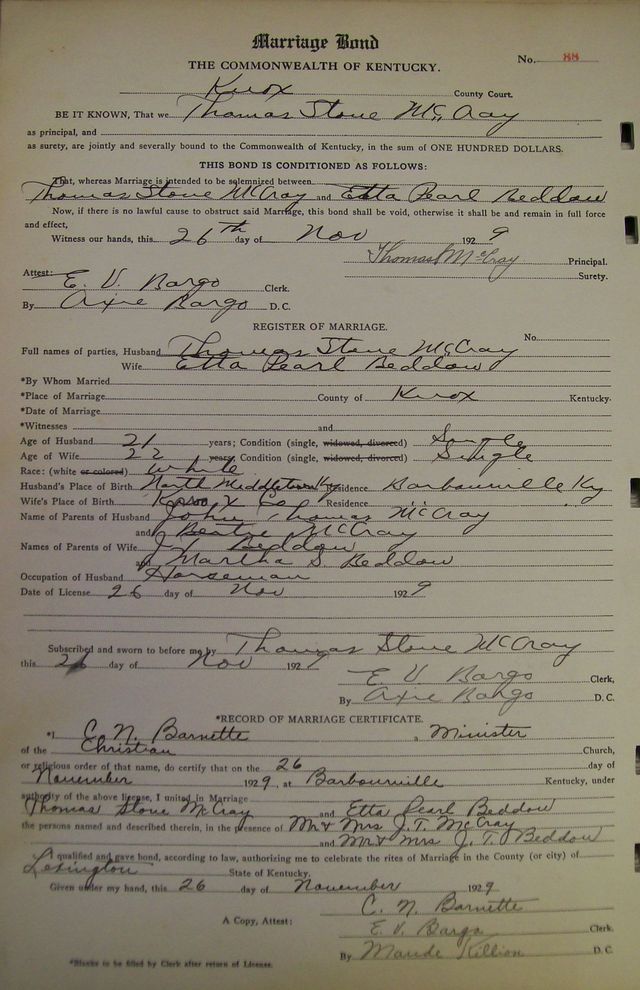 Marriage Bond
No. 88
THE COMMONWEALTH OF KENTUCKY.
Knox County Court.
BE IT KNOWN, That we Thomas Stone McCray
as principal, and
as surety, are jointly and severally bound to the Commonwealth of Kentucky, in the sum of ONE HUNDRED DOLLARS.
THIS BOND IS CONDITIONED AS FOLLOWS:
That, whereas Marriage is intended to be solemnized between
Thomas Stone McCray and Etta Pearl Beddow
Now, if there is no lawful cause to obstruct said Marriage, this bond shall be void, otherwise it shall be and remain in full force
and effect,
Witness our hands, this 26th day of Nov 1929
Thomas McCray Principal.
Surety.
Attest:
E. V. Bargo Clerk.
By Axie Bargo D. C.
REGISTER OF MARRIAGE.
No.
Full names of parties, Husband Thomas Stone McCray
Wife Etta Pearl Beddow
*By Whom Married
*Place of Marriage County of Knox Kentucky.
*Date of Marriage
*Witnesses and
Age of Husband 21 years; Condition (single, widowed, divorced) Single
Age of Wife 22 years; Condition (single, widowed, divorced) Single
Race: (white or colored) White
Husband's Place of Birth North Middletown Ky Residence Barbourville Ky
Wife's Place of Birth Knox Co Residence " "
Name of Parents of Husband John Thomas McCray
and McCray
Names of Parents of Wife J. T. Beddow
and Martha S. Beddow
Occupation of Husband Horseman
Date of License 26 day of Nov 1929
Subscribed and sworn to before me by Thomas Stone McCray
this 26 day of Nov 1929
E. V. Bargo Clerk,
By Axie Bargo D. C.
*RECORD OF MARRIAGE CERTIFICATE.
*I C. N. Barnette a Minister
of the Christian Church,
or religious order of that name, do certify that on the 26 day of
November 1929, at Barbourville Kentucky, under
authority of the above license, I united in Marriage
Thomas Stone McCray and Etta Pearl Beddow
the persons named and described therein, in the presence of Mr & Mrs J. T. McCray
and Mr & Mrs J. T. Beddow
A qualified and gave bond, according to law, authorizing me to celebrate the rites of Marriage in the County (or city) of
Lexington State of Kentucky.
Given under my hand, this 26 day of November 1929
C. N. Barnette
A Copy, Attest: E. V. Bargo Clerk.
By Maude Killion D. C.
*Blanks to be filled by Clerk after return of License.